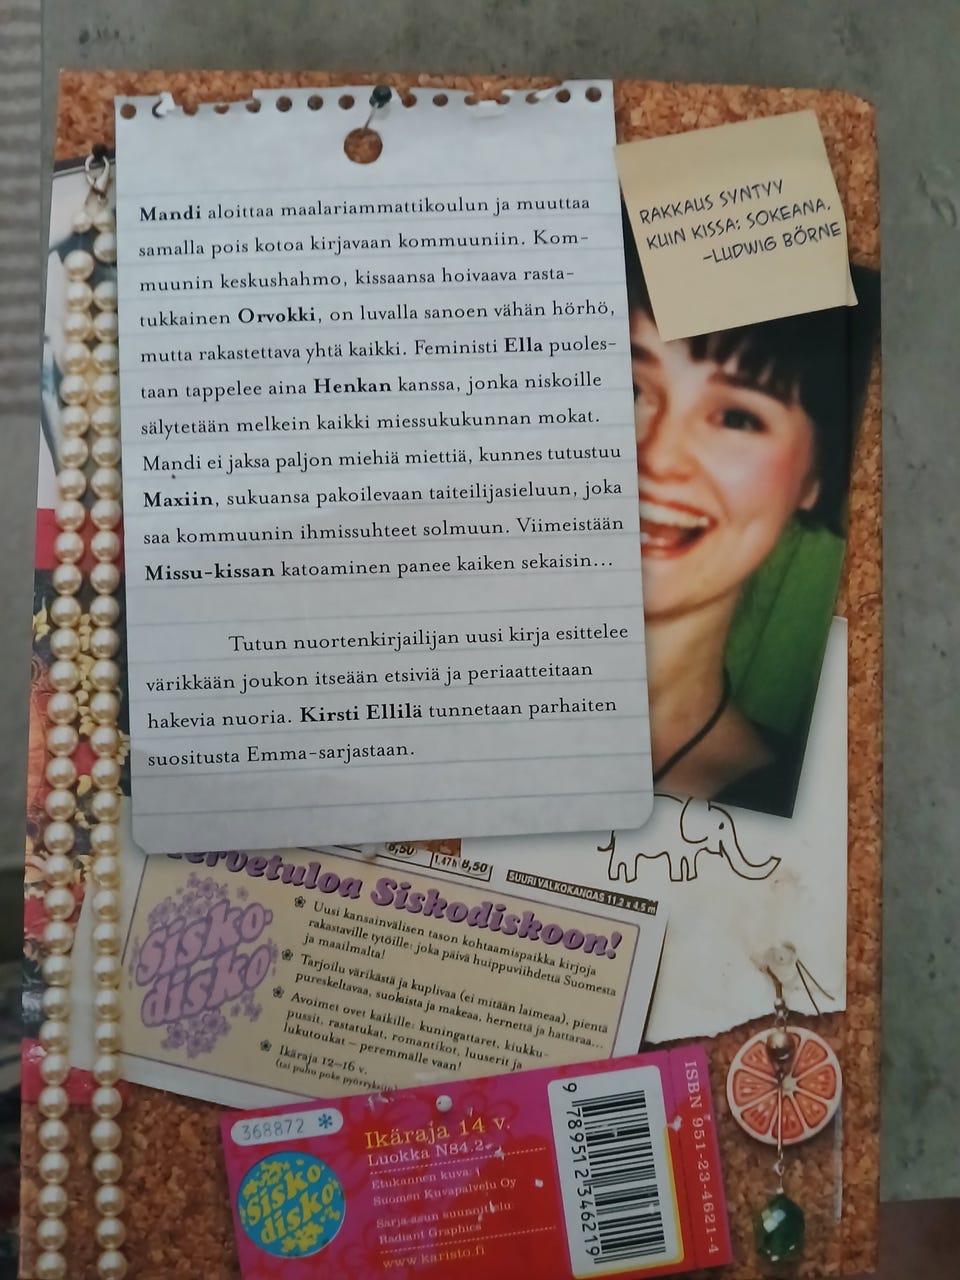 Mandi aloittaa maalariammattikoulun ja muuttaa
samalla pois kotoa kirjavaan kommuuniin. Kom-
muunin keskushahmo, kissaansa hoivaava rasta-
tukkainen Orvokki, on luvalla sanoen vähän hörhö,
mutta rakastettava yhtä kaikki. Feministi Ella puoles-
taan tappelee aina Henkan kanssa, jonka niskoille
sälytetään melkein kaikki miessukukunnan mokat.
Mandi ei jaksa paljon miehiä miettiä, kunnes tutustuu
Maxiin, sukuansa pakoilevaan taiteilijasieluun, joka
saa kommuunin ihmissuhteet solmuun. Viimeistään
Missu-kissan katoaminen panee kaiken sekaisin...
Tutun nuortenkirjailijan uusi kirja esittelee
värikkään joukon itseään etsiviä ja periaatteitaan
hakevia nuoria. Kirsti Ellilä tunnetaan parhaiten
suositusta Emma-sarjastaan.
RAKKAUS SYNTYY
KUIN KISSA: SOKEANA.
-LUDWIG BÖRNE
8,50
1.47 h 8,50
SUURI VALKOKANGAS 11,2 x 4,5 m
Tervetuloa Siskodiskoon!
Sisko-
disko
Uusi kansainvälisen tason kohtaamispaikka kirjoja
rakastaville tytöille: joka päivä huippuviihdettä Suomesta
ja maailmalta!
Tarjoilu värikästä ja kuplivaa (ei mitään laimeaa), pientä
pureskeltavaa, suolaista ja makeaa, hernettä ja hattaraa...
Avoimet ovet kaikille: kuningattaret, kiukku-
pussit, rastatukat, romantikot, luuserit ja
lukutoukat – peremmälle vaan!
Ikäraja 12–16 v.
(tai puhu poke pyörryksiin)
368872 *
sisko
disko
Ikäraja 14 v.
Luokka N84.2
Etukannen kuva:
Suomen Kuvapalvelu Oy
Sarja-asun suunnittelu:
Radiant Graphics
www.karisto.fi
9 789512 346219
ISBN 951-23-4621-4